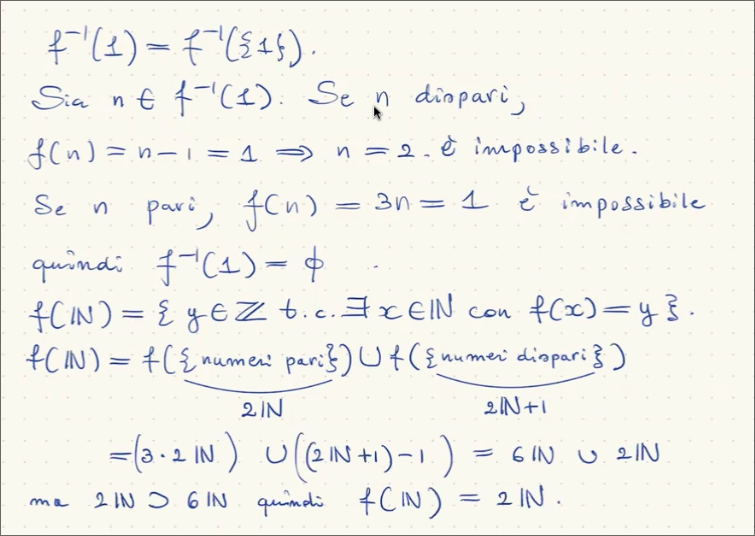 f⁻¹(1) = f⁻¹({1}).
Sia n ∈ f⁻¹(1). Se n dispari,
f(n) = n-1 = 1 ⟹ n = 2. è impossibile.
Se n pari, f(n) = 3n = 1 è impossibile
quindi f⁻¹(1) = ϕ .
f(ℕ) = { y ∈ ℤ t.c. ∃ x ∈ ℕ con f(x) = y }.
f(ℕ) = f({numeri pari}) ∪ f({numeri dispari})
2ℕ 2ℕ+1
= (3·2ℕ) ∪ ((2ℕ+1)-1) = 6ℕ ∪ 2ℕ
ma 2ℕ ⊃ 6ℕ quindi f(ℕ) = 2ℕ.